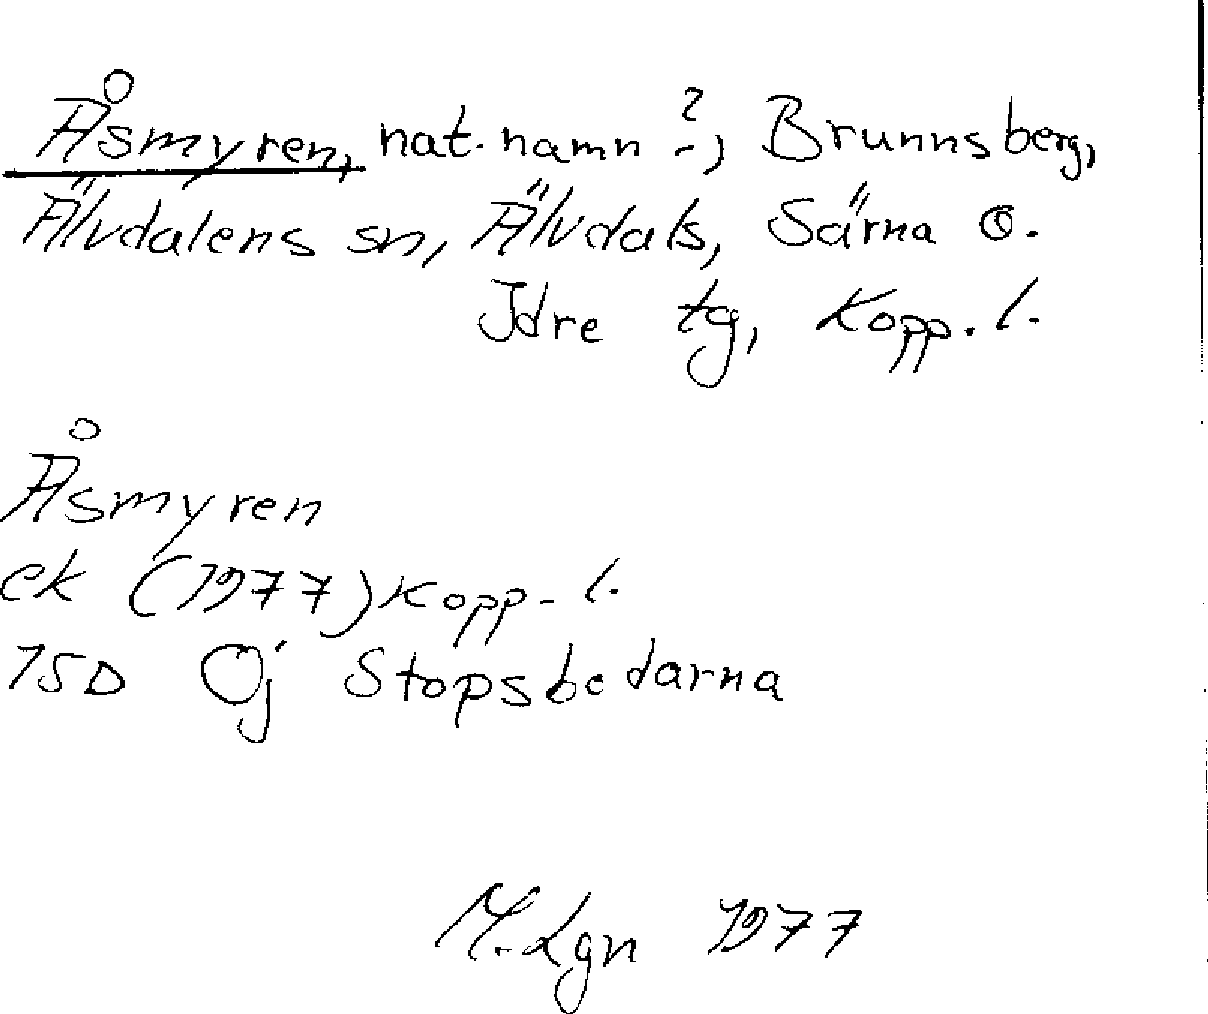 Åsmyren, nat. namn ?, Brunnsberg,
Älvdalens sn, Älvdals, Särna o.
Idre tg, Kopp. l.
Åsmyren
ek (1977) Kopp. l.
15D Öj Stopsbodarna
M. Lgn 1977